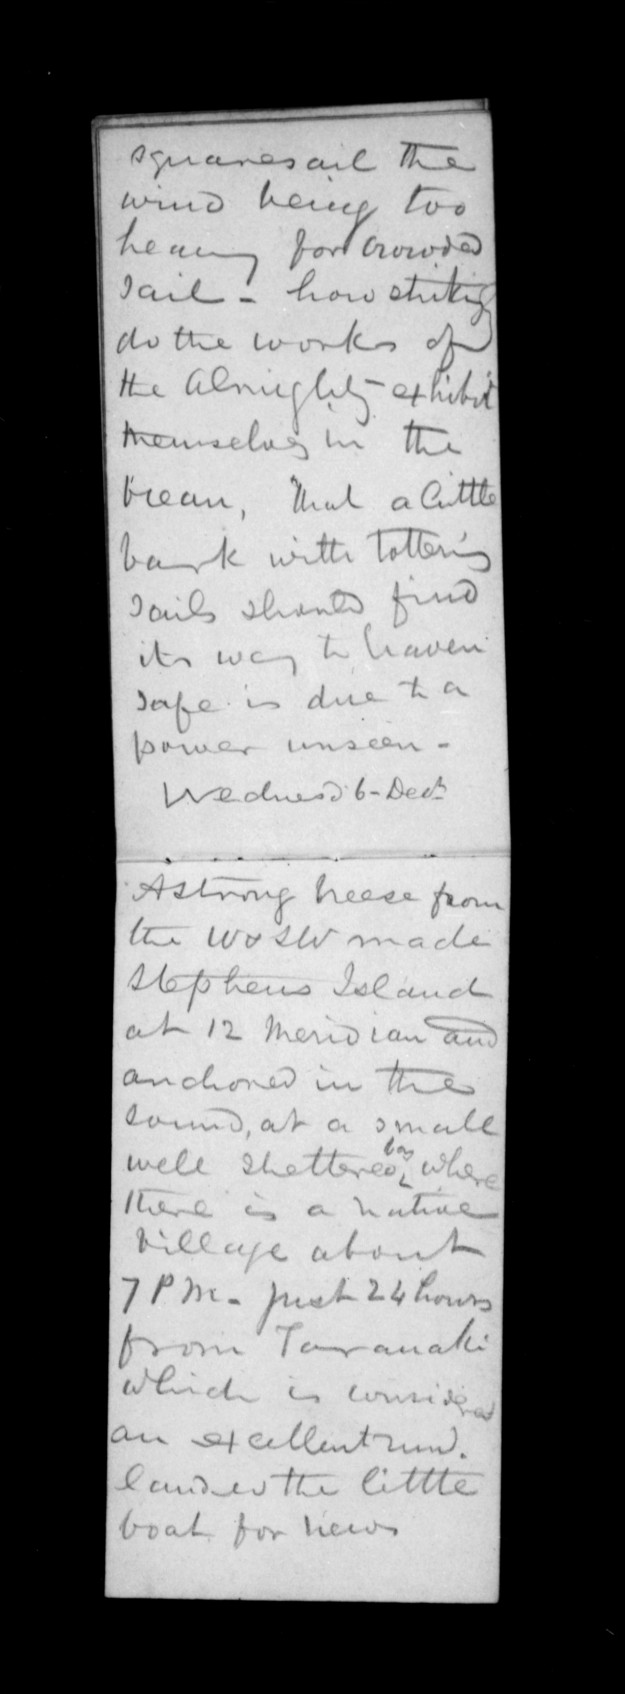 squaresail the
wind being too
heavy for crowded
sail - how striking
do the works of
the Almighty exhibit
themselves in the
Ocean, that a little
bark with tottering
sails should find
its way to haven
safe is due to a
power unseen -
Wednesd 6 - Decr
A strong breese from
the W & SW made
Stephens Island
at 12 Meridian and
anchored in the
sound, at a small
well sheltered bay where
there is a native
village about
7 P M - just 24 hours
from Taranaki
which is considered
an excellent run.
landed the little
boat for news